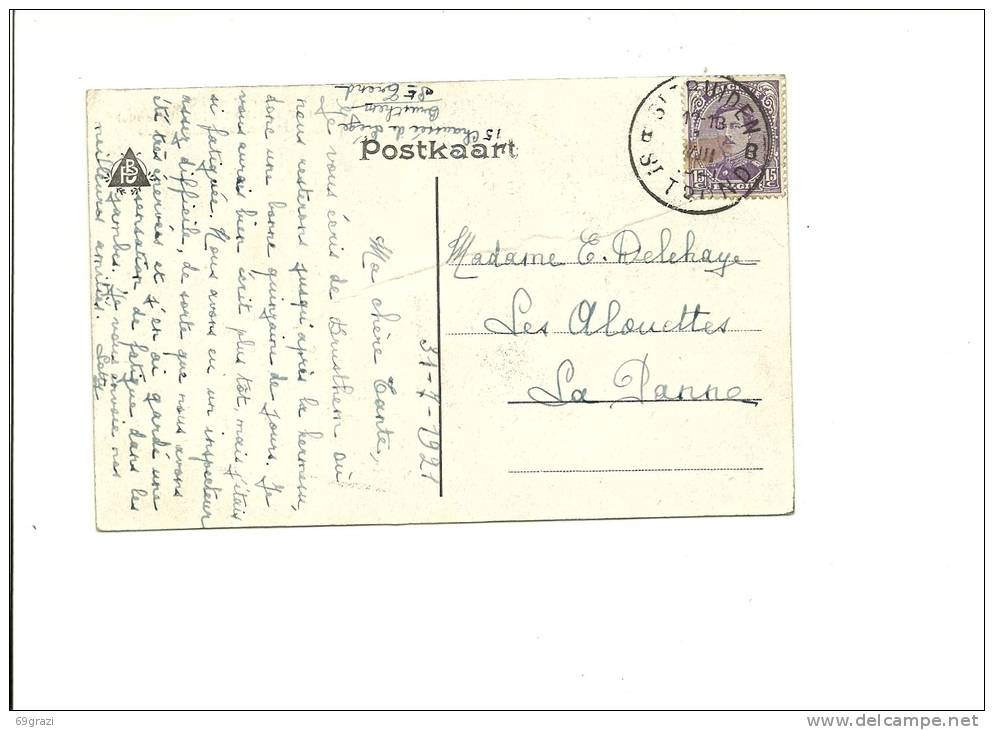 15 Chaussée de Liège
Brusthem
St Trond
Postkaart
31-7-1921
Ma chère Tante,
Je vous écris de Brusthem où
nous resterons jusqu'après la kermesse,
donc une bonne quinzaine de jours. Je
vous aurais bien écrit plus tôt, mais j'étais
si fatiguée. Nous avons eu un inspecteur
assez difficile, de sorte que nous avons
été très énervées et j'en ai gardé une
sensation de fatigue dans les
jambes. Je vous envoie nos
meilleures amitiés.
Madame E. Delehaye
Les Alouettes
La Panne
ST TRUIDEN
11-12
VIII
B
ST TROND
15 15
BPC
69grazi
delcampe.net